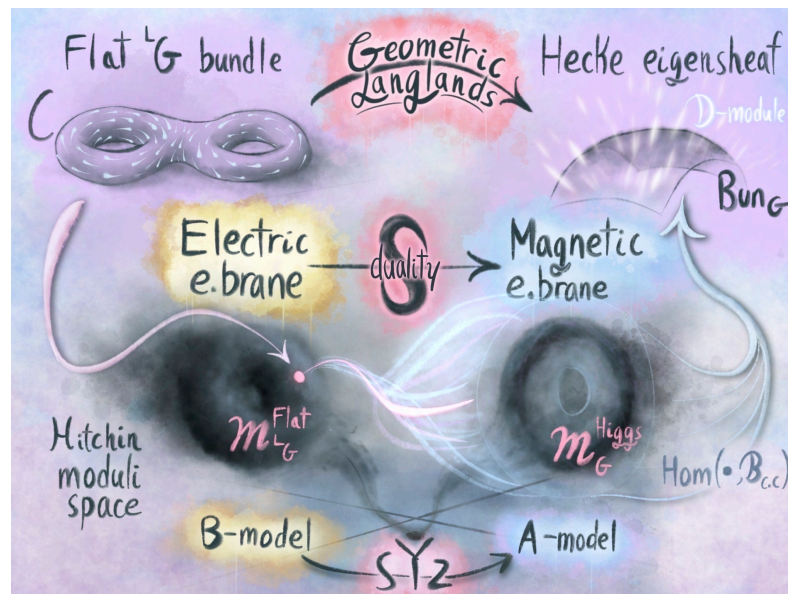 Flat ᴸG bundle
Geometric
Langlands
Hecke eigensheaf
C
D-module
Bun_G
Electric
e.brane
S
duality
Magnetic
e.brane
M^Flat_ᴸG
M^Higgs_G
Hitchin
moduli
space
Hom(•,B_c.c)
B-model
SYZ
A-model